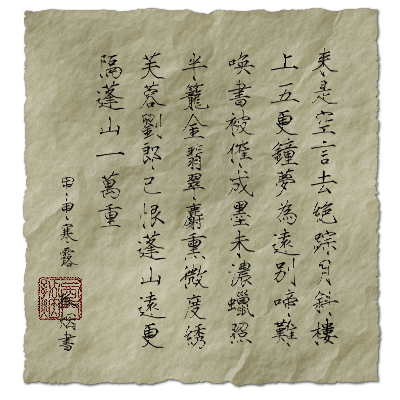 来是空言去絕踪月斜樓
上五更鐘夢為遠別啼難
喚書被催成墨未濃蠟照
半籠金翡翠麝熏微度綉
芙蓉劉郎已恨蓬山遠更
隔蓬山一萬重
甲申寒露
書